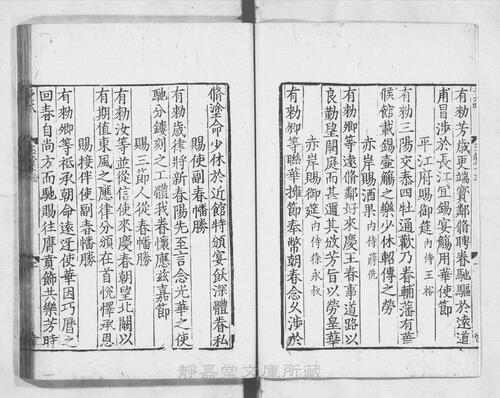 有勑芳歲更端寳鄰脩聘眷馳驅於逺道
甫冒涉於長江宜錫宴觴用華使節
平江府賜御筵 内侍王裕
有勑三陽交泰四牡通歡乃眷輔藩有華
候館載錫壷觴之樂少休軺傳之勞
赤岸賜酒果 内侍蔣
有勑卿等逺脩鄰好來慶王春事道路以
良勤望闕庭而甚邇其歆芳旨以勞皇華
赤岸賜御筵 内侍徐永叔
有勑卿等聯華擁節奉幣朝春念乆涉於
脩塗命少休於近館特頒宴飫深體眷私
賜使副春幡勝
有勑歲律將新春陽先至言念光華之使
馳分鏤刻之工體我眷懷應兹嘉節
賜三節人從春幡勝
有勑汝等並從信使來慶春朝望北闕以
有期値東風之應律分頒在首恱懌承恩
賜接伴使副春幡勝
有勑卿等祗承朝命逺迓使華因巧曆之
回春自尚方而馳賜往膺賁飾共樂芳時
靜嘉堂文庫所藏